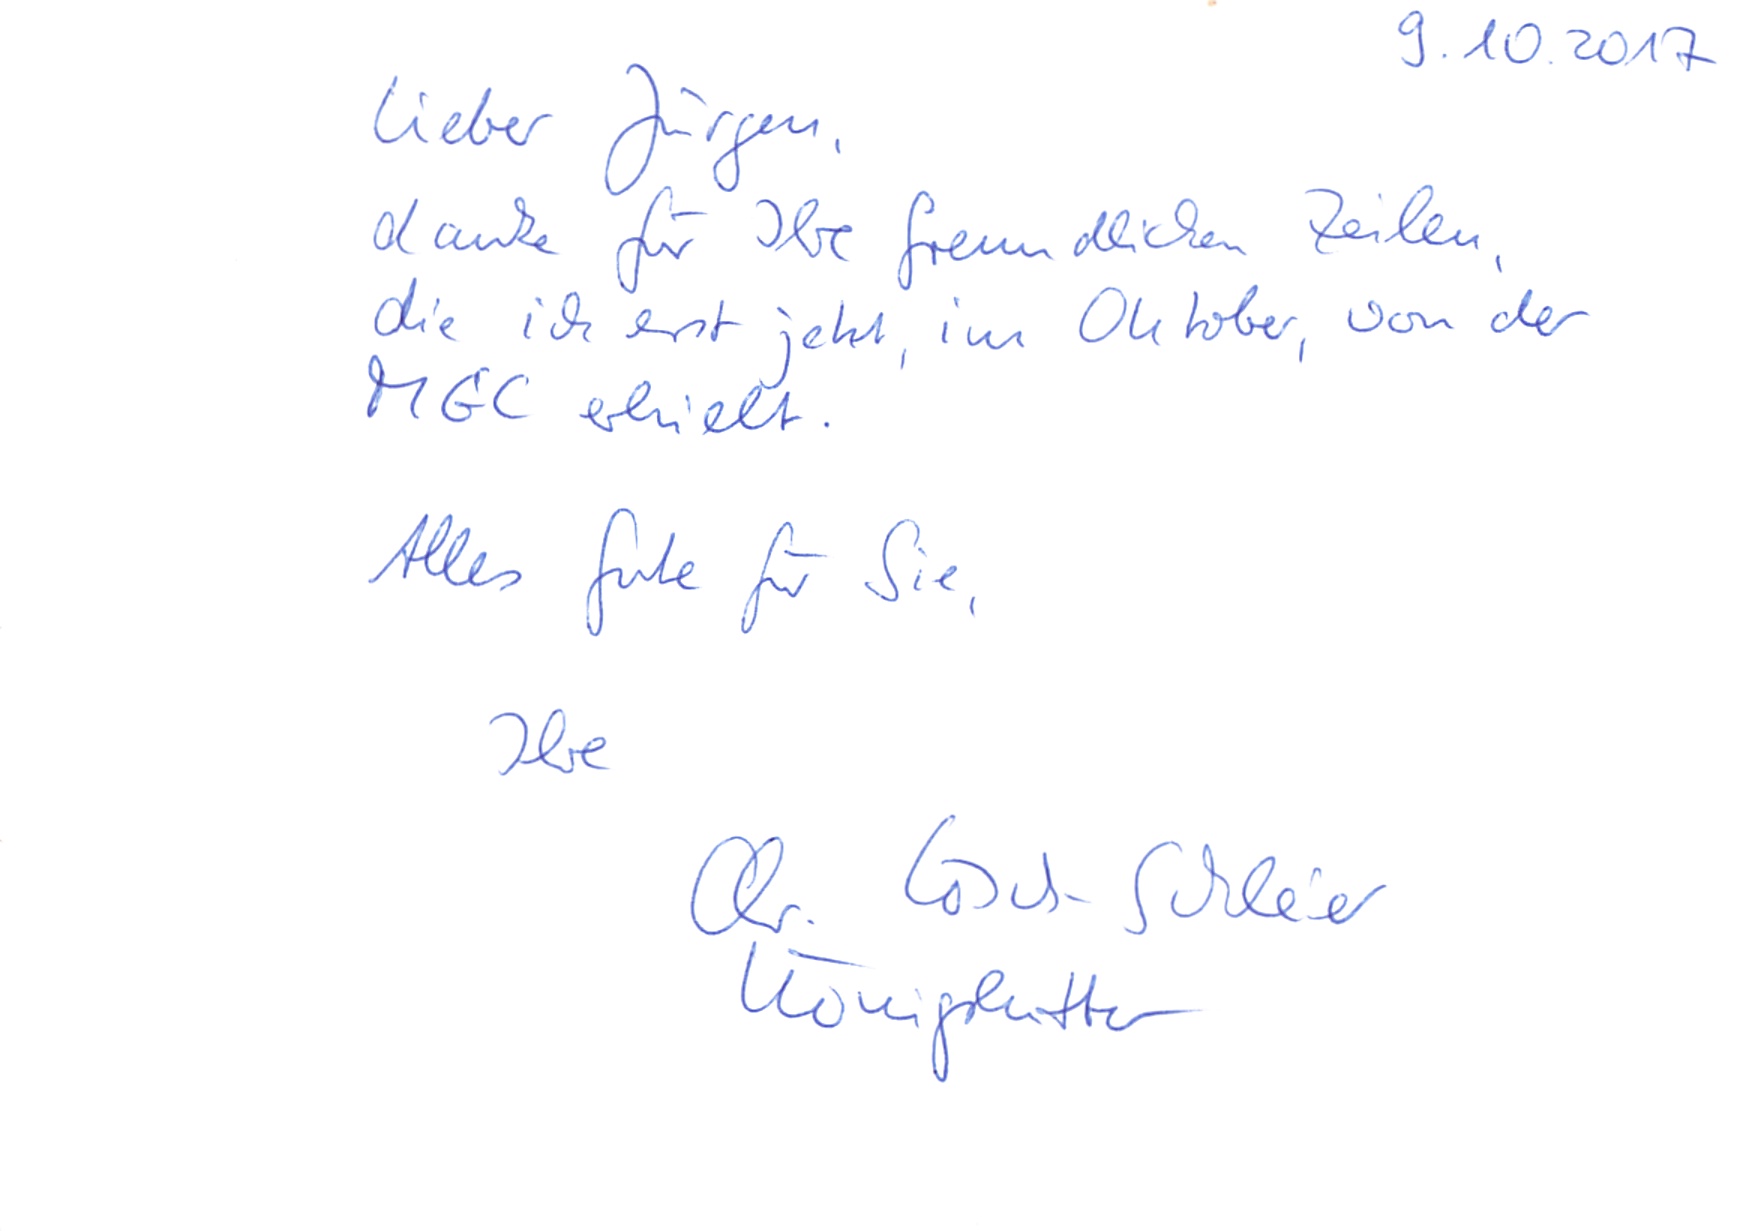 9.10.2017
Lieber Jürgen,
danke für Ihre freundlichen Zeilen,
die ich erst jetzt, im Oktober, von der
MGC erhielt.
Alles Gute für Sie,
Ihre
Chr. Lösch-Schleier